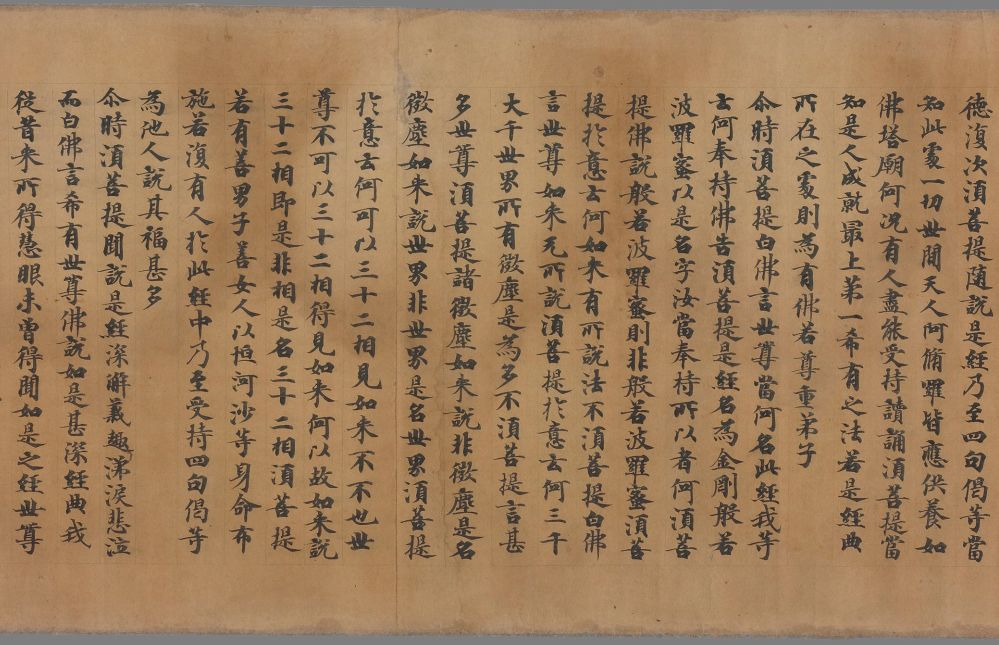 德復次湏菩提随說是經乃至四句偈等當
知此處一切世間天人阿脩羅皆應供養如
佛塔廟何况有人盡能受持讀誦湏菩提當
知是人成就最上苐一希有之法若是經典
所在之處則為有佛若尊重弟子
尒時湏菩提白佛言世尊當何名此經我等
云何奉持佛告湏菩提是經名為金剛般若
波羅蜜以是名字汝當奉持所以者何湏菩
提佛說般若波羅蜜則非般若波羅蜜湏菩
提於意云何如来有所說法不湏菩提白佛
言世尊如来无所說湏菩提於意云何三千
大千世界所有微塵是為多不湏菩提言甚
多世尊湏菩提諸微塵如来說非微塵是名
微塵如来說世界非世界是名世界湏菩提
於意云何可以三十二相見如来不不也世
尊不可以三十二相得見如来何以故如来說
三十二相即是非相是名三十二相湏菩提
若有善男子善女人以恒河沙等身命布
施若復有人於此經中乃至受持四句偈等
為他人說其福甚多
尒時湏菩提聞說是經深解義趣涕淚悲泣
而白佛言希有世尊佛說如是甚深經典我
從昔来所得慧眼未曾得聞如是之經世尊